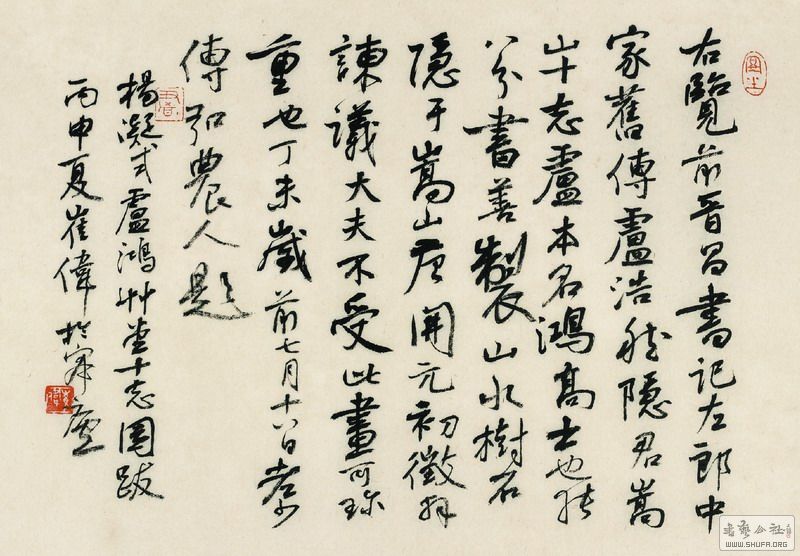 右覽前晉昌書記左郎中
家舊傳盧浩然隱君嵩
山十志盧本名鴻高士也能
八分書善製山水樹石
隱于嵩山唐開元初徵拜
諫議大夫不受此畫可珍
重也丁未歲前七月十八日老少
傅弘農人題
楊凝式盧鴻艸堂十志圖跋
丙申夏崔偉於
書藝公社
WWW.SHUFA.ORG